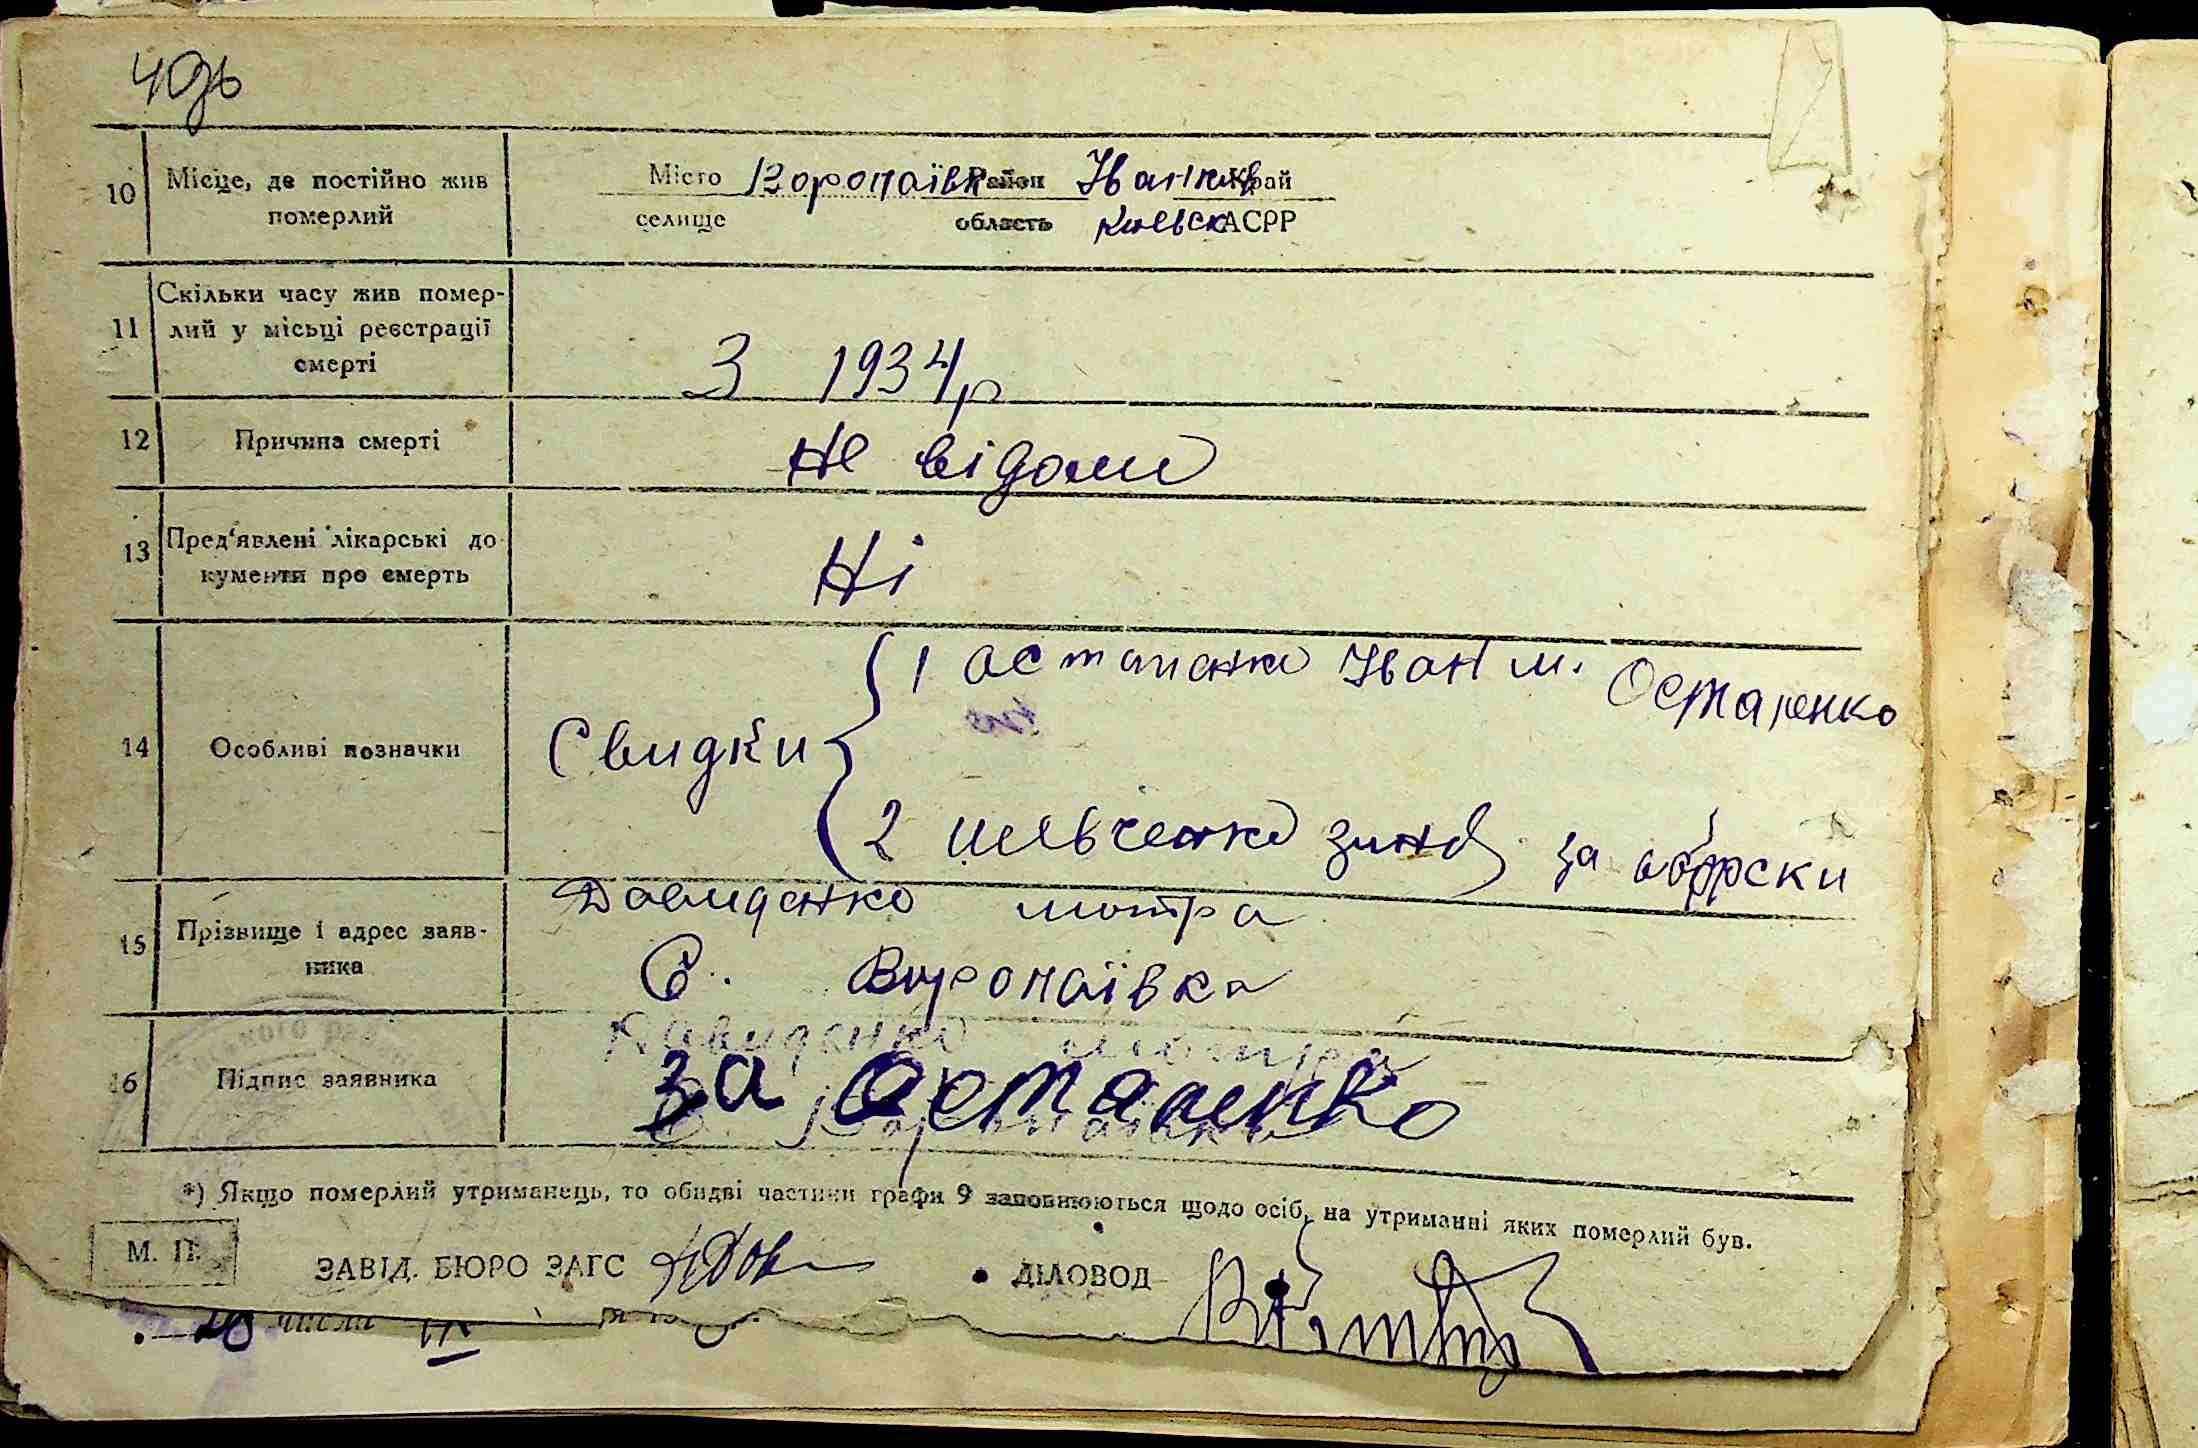 10 Місце, де постійно жив померлий
Місто Воропаївк Район Іванків Край
селище область Киевск АСРР
11 Скільки часу жив помер-
лий у місьці реєстрації
смерті
З 1934 р
12 Причина смерті
Не відоми
13 Пред'явлені лікарські до-
кументи про смерть
Ні
14 Особливі позначки
Свидки
1 Остапенко Іван м. Остапенко
2 Шевченко Зина за
15 Прізвище і адрес заяв-
ника
Давиденко мотра
С. Воропаївка
Давиденко Мотра
16 Підпис заявника
за Остапенко
*) Якщо померлий утриманець, то обидві частини графи 9 заповнюються щодо осіб, на утриманні яких померлий був.
М. П.
ЗАВІД. БЮРО ЗАГС
ДІЛОВОД
числа